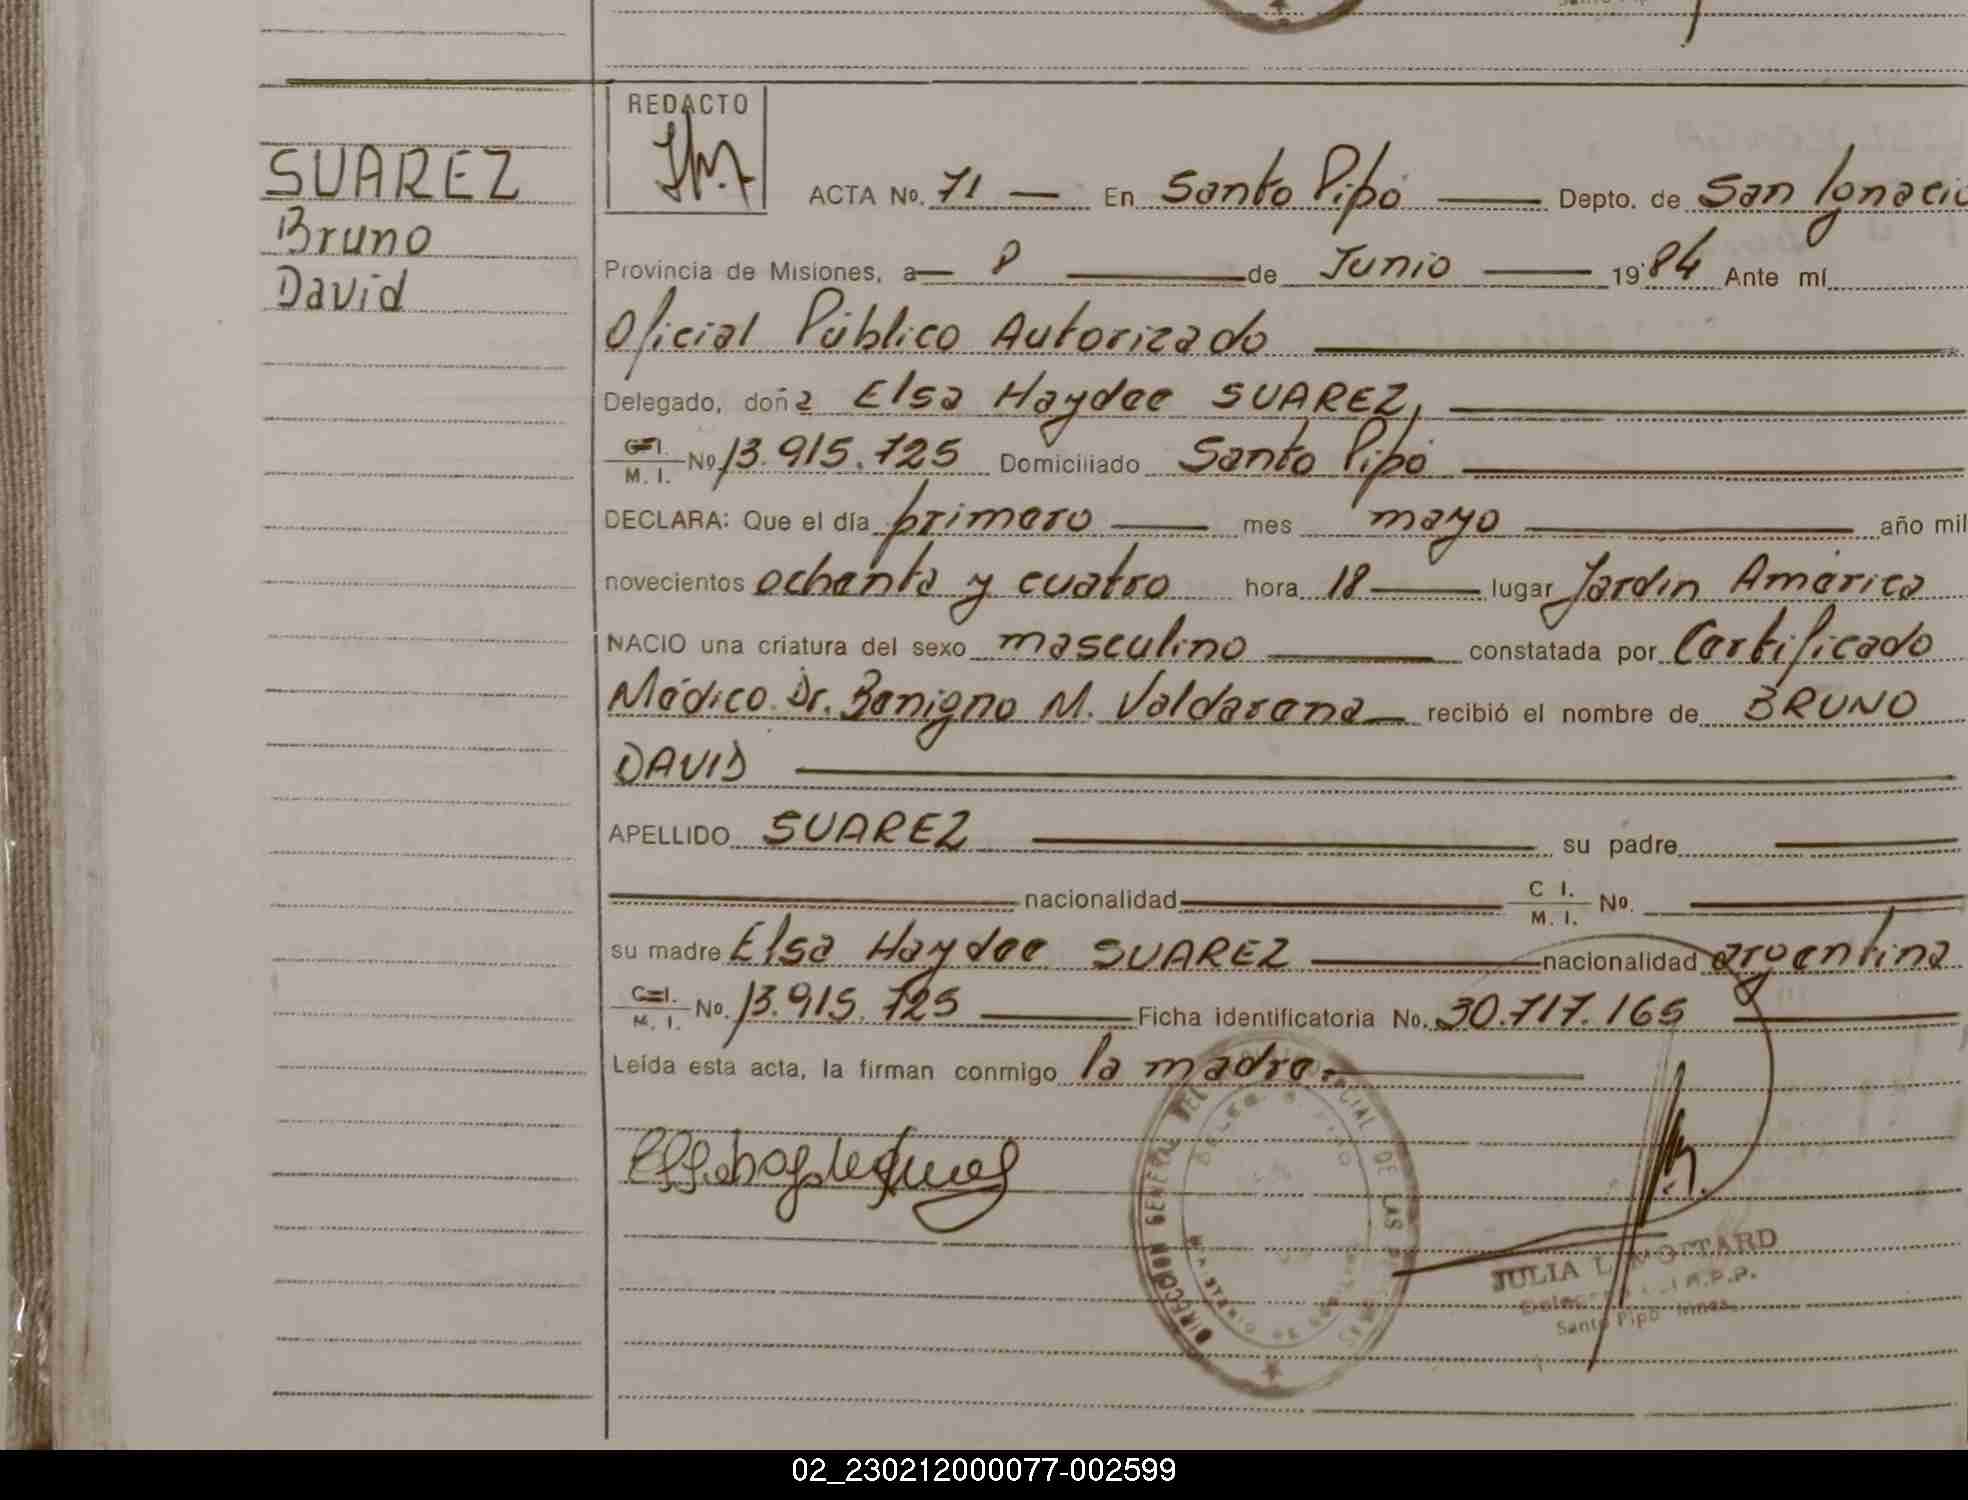 REDACTO
SUAREZ
Bruno
David
ACTA No. 71 — En Santo Pipó — Depto. de San Ignacio
Provincia de Misiones, a — 8 — de Junio — 1984 Ante mí
Oficial Público Autorizado
Delegado, doña Elsa Haydee SUAREZ,
C.I. M. I. No 13.915.725 Domiciliado Santo Pipó
DECLARA: Que el día primero — mes mayo — año mil
novecientos ochenta y cuatro hora 18 — lugar Jardín América
NACIO una criatura del sexo masculino — constatada por Certificado
Médico Dr. Benigno M. Valdarena — recibió el nombre de BRUNO
DAVID
APELLIDO SUAREZ — su padre —
— nacionalidad — C I. M. I. No. —
su madre Elsa Haydee SUAREZ — nacionalidad argentina
C.I. M. I. No. 13.915.725 — Ficha identificatoria No. 30.717.165 —
Leída esta acta, la firman conmigo la madre.—
DIRECCION GENERAL DEL CIAL DE LAS
JULIA L. MOITTARD
Santo Pipó
02_230212000077-002599